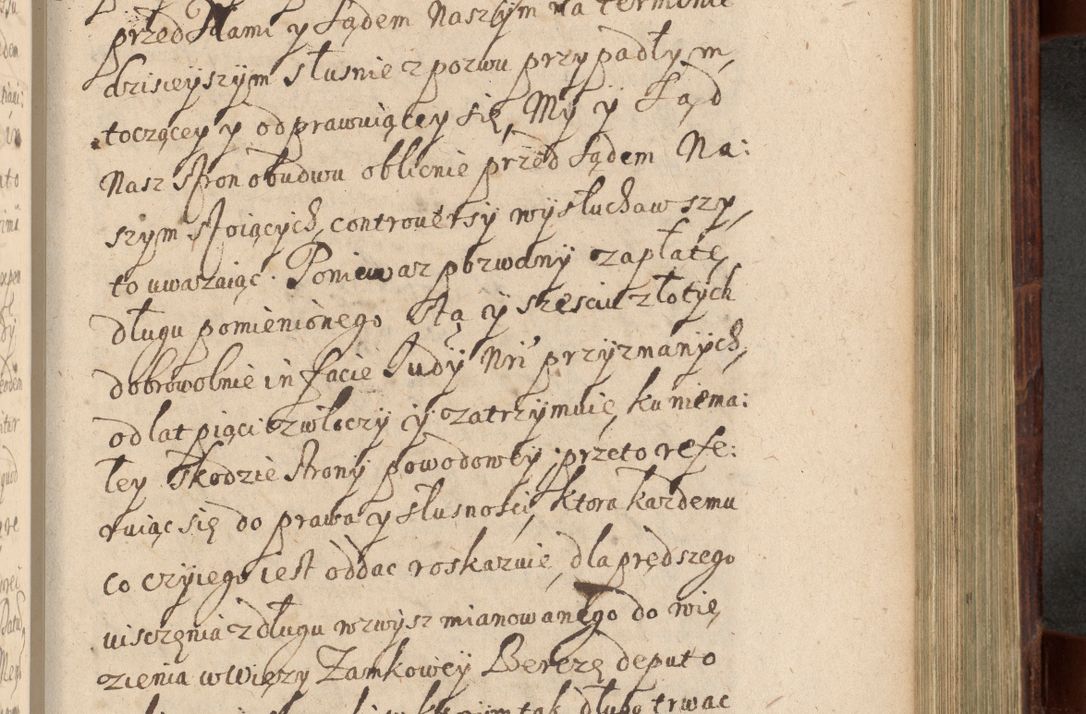 przed Nami y Sądem Naszym na terminie
dzisieyszym słusnie z pozwu przypadłym,
toczącey y odprawuiącey się, My y Sąd
Nasz stron obudwu oblicnie przed Sądem Na:
szym stoiących, controuersy wysłuchawszy,
to uwazaiąc. Poniewasz pozwany zapłatę,
długu pomienionego Stą y szesciu złotych
dobrowolnie in facie Judy Nri przyznanych,
od lat piąci zwłoczy y zatrzymuie, ku niema:
łey Skodzie strony powodowey; przeto refe:
ruiąc się do prawa y słusności, ktora kazdemu
co czyiego iest oddac roskazuie, dla prędszego
uisczęnia z długu wzwysz mianowanego do wię
zienia w Wiezy Zamkowey Berczę deputo
tak długo trwac